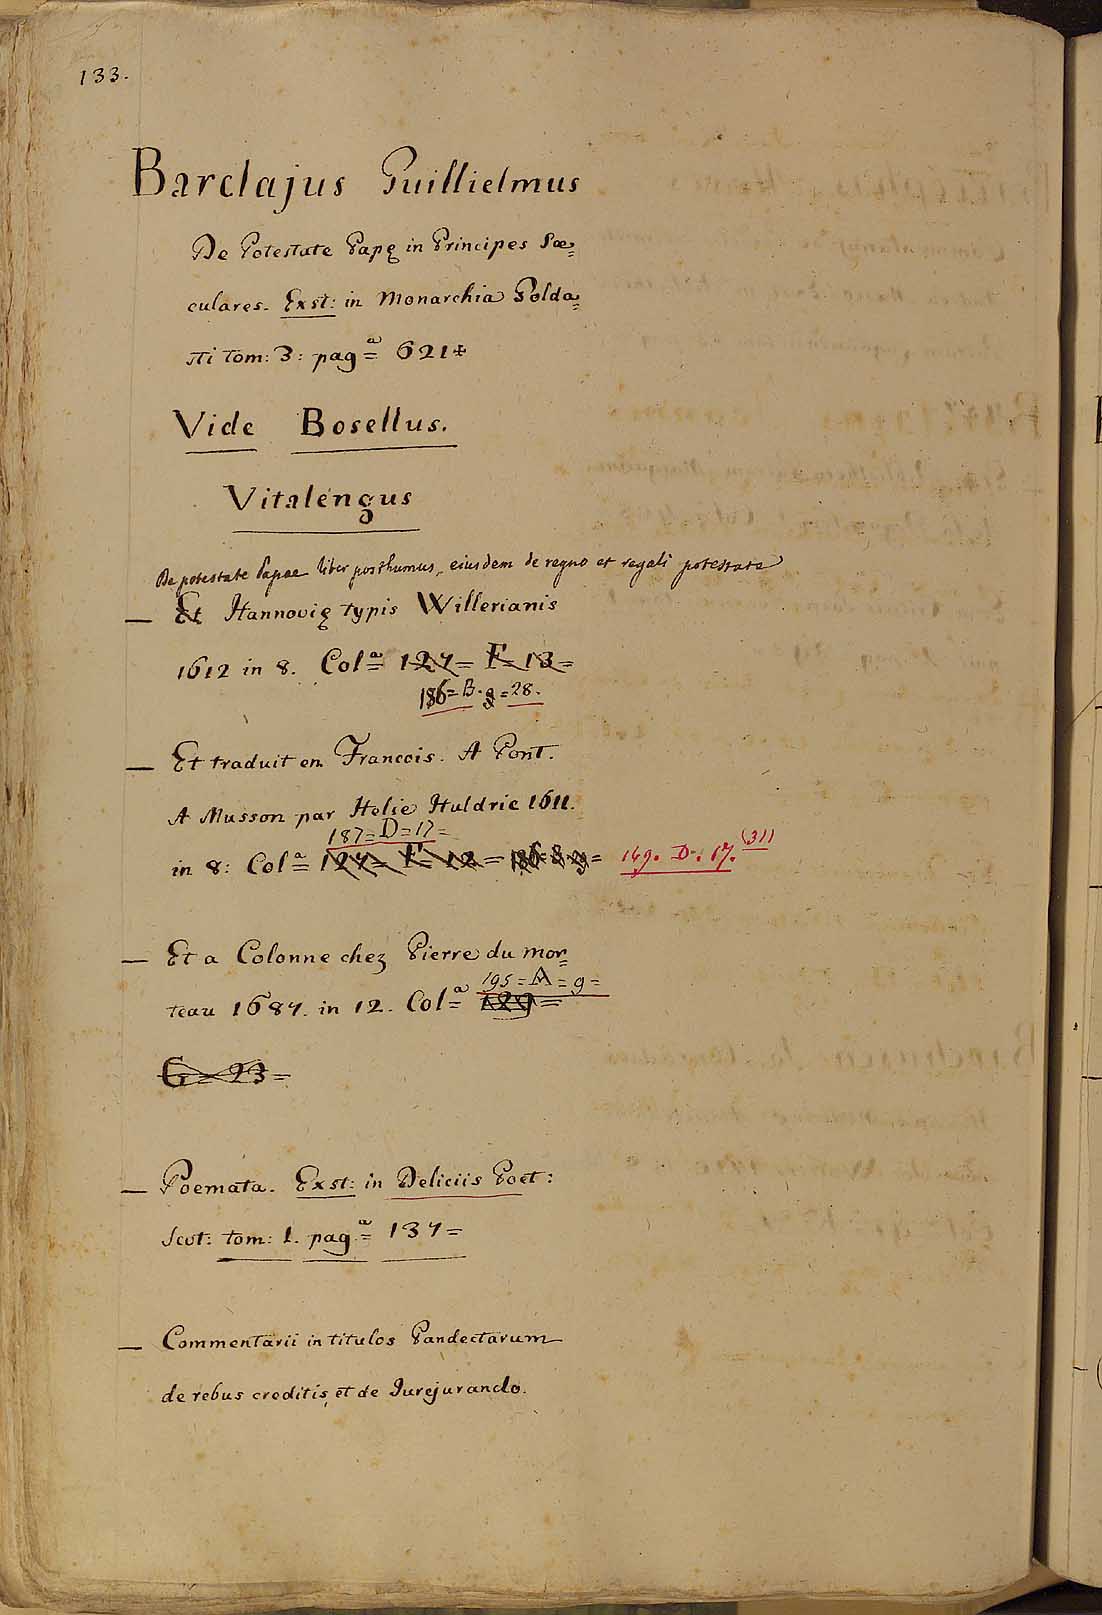 133.
Barclajus Guillielmus
De Potestate Papę in Principes Sæ=
culares. Exst: in Monarchia Golda=
sti tom: 3: pagª= 621+
Vide Bosellus.
Vitalengus
De potestate Papae liber posthumus, eiusdem de regno et regali potestate
— Et Hannovię typis Willerianis
1612 in 8. Colª= 127= F=13=
186=B.g=28.
— Et traduit en Francois. A Pont.
A Musson par Helie Huldric 1611.
187=D=17=
in 8: Colª= 127= F=12= 149. D. 17. (311)
— Et a Colonne chez Pierre du mor=
195=A=g=
teau 1687. in 12. Colª= 129=
G=23=
— Poemata. Exst: in Deliciis Poet:
Scot: tom: 1. pagª= 137=
— Commentarii in titulos Pandectarum
de rebus creditis, et de Jurejurando.